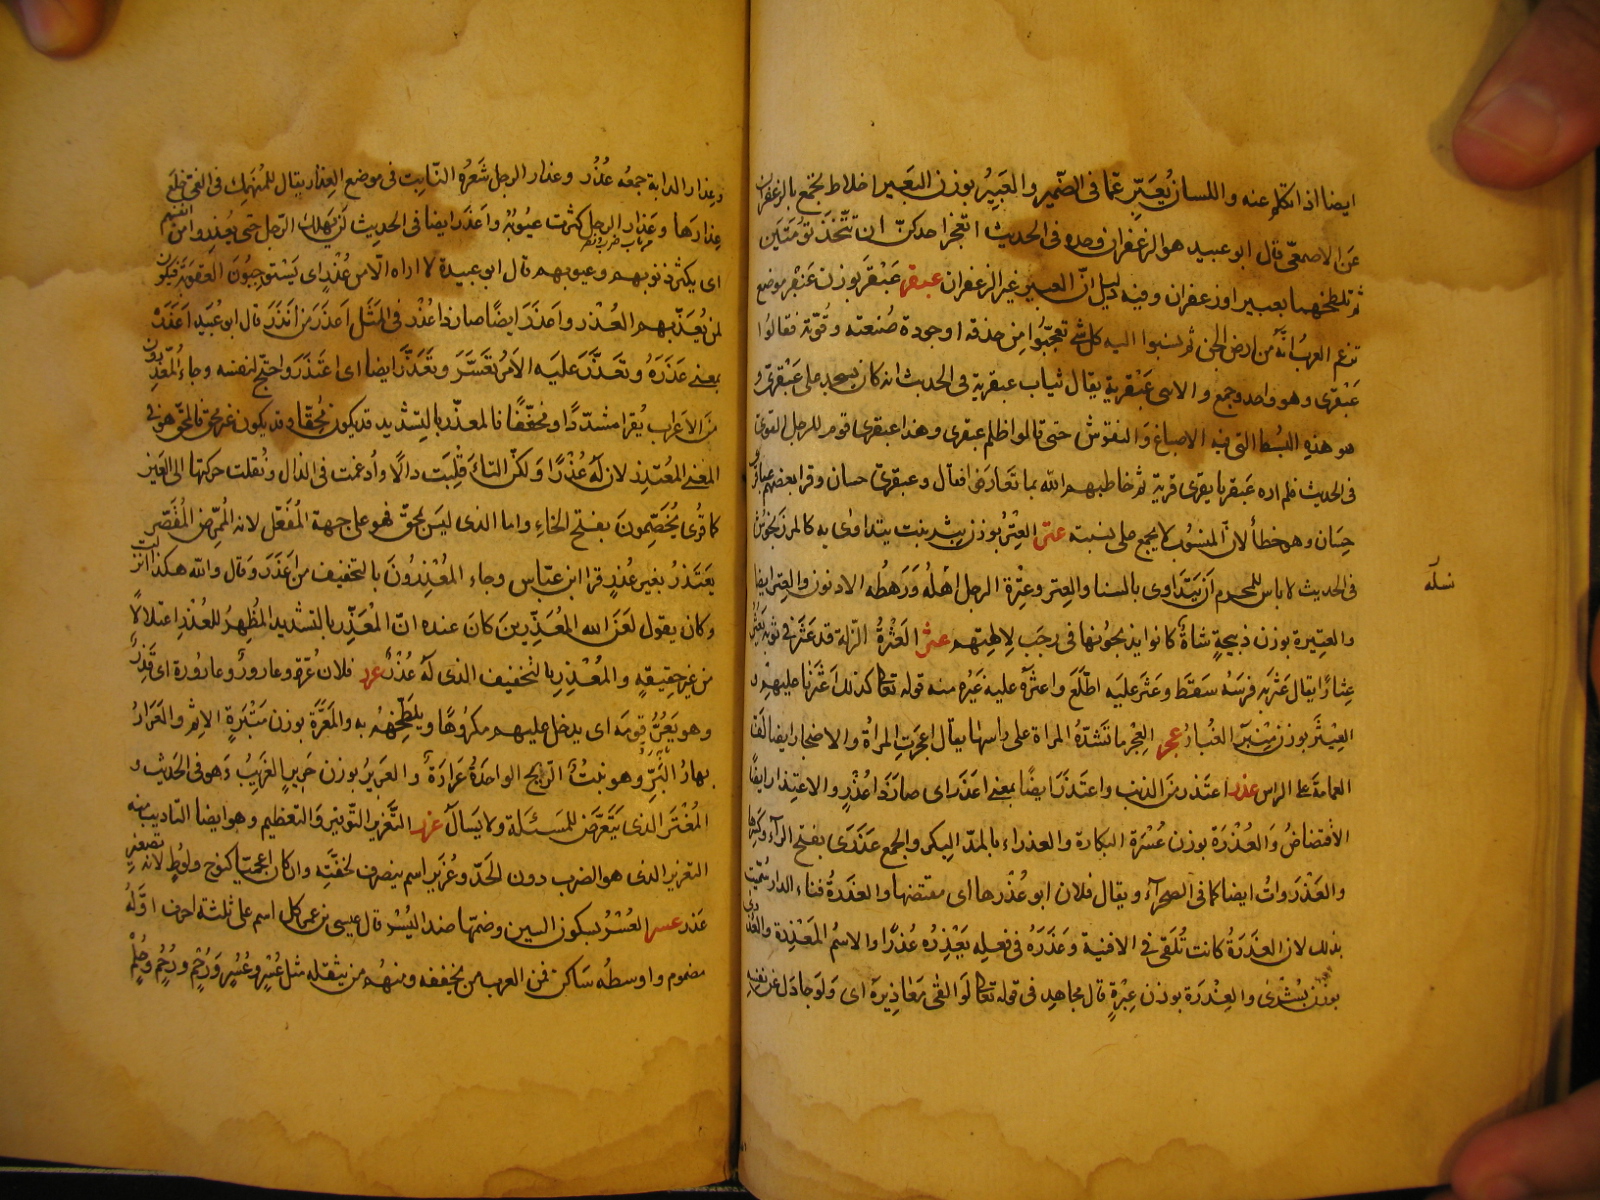 ايضا اذا تكلم عنه واللسان يُعَبِّر عمّا فى الضمير والعَبِيرُ بوزن البَعير اخلاط تجمع بالزعفران
عَن الاصمعّى قال ابو عبيد هو الزعفران وحده فى الحديث اتعجز احدكنّ ان تتّخذ تُومَتَين
ثم تلطخهما بعبير او زعفران وفيه دليل انّ العبير غير الزعفران عبقر عَبْقَر بوزن عَنْبَر موضع
تزعم العربُ انّه من ارض الجن ثم نسبوا اليه كل شئ تعجّبُوا من حذقه او جودة صُنعته وقُوّته فقالوا
عَبْقرى وهو واحد وجمع والانثى عَبْقرية يقال ثياب عبقرية فى الحديث انه كان يسجد على عَبْقرىّ و
هو هذه البُسُط التى فيه الاصباغ وَالنقوش حتى قالوا ظلم عبقرى وهذا عبقرى قوم للرجل القوىّ
فى الحديث فلم اره عَبقريا يفرى فريّه ثم خاطبهم الله بما تعَارفوه فقال وعبقرىّ حسان وقرا بعضهم عباقرىّ
حِسَان وهو خطأ لانّ المنسُوب لا يجمع على نسبته عتر العِتْرُ بوزن نبت يتداوى به كالمرزنجوش
فى الحديث لا باس للمحرم اَن يتَدَاوى بالسنا والعِتر وعِتْرة الرجل اهْلُه وَرَهطُه الادنون والعِتر ايضا
نسله
والعتِيرة بوزن ذبيحةٍ شاةٌ كانوا يذبحونها فى رجَب لِالهتِهم عثر العَثْرةُ الزلة قد عَثَر فى ثوبه يَعْثُر
عِثارًا يقال عَثَر به فرسَهُ سَقَط وعَثَر عليَه اطّلَعَ واعثرَه عليه غَيْره منه قوله تعالى كذلك اَعْثَرنا عليهم و
العِيْثَر بوزن مِنْبَر الغُبارُ عجر المِعْجَر ما تَشدّهُ المراة على راسها يقال اعجَرَتِ المراةُ والاعتجار ايضا لفّ
العمامة على الراس عذر اعتذر منَ الذنب واعتَذَرَ ايضًا بمعنى اعذَرَ اى صارَ ذا عُذْرٍ والاعتِذار ايضًا
الاقتضاضُ وَالعُذْرَة بوزن عُسْرَة البكارة والعذراء بالمدّ البِكر والجمع عَذَارَى بفتح الرآء وكسرها
والعَذْرَاواتُ ايضا كما فى الصحرآء ويقال فلان ابو عُذْرها اى مقتضها والعَذِرةُ فناء الدار سُمّيت
بذلك لان العَذِرَةُ كانت تُلقَى فى الافنية وعَذَرَهُ فى فعله يَعْذِرُه عُذرًا والاسْمُ المَعْذِرة والعُذْرَى
بوزن بُشْرى والعِذْرَة بوزن عِبْرةٍ قال مجاهد فى قوله تعالى وَلَو القٰى مَعَاذِيرَه اى وَلوَ جَادَل عن نفسه
وعِذار الدابة جمعُه عُذُر وعذار الرجل شَعَرُه النّابت فى موضع العِذار يقال للمُنهَمِك فى الغىّ خلَعَ
عِذارَها وعَذِر الرجل كثرت عيُوبُهُ واَعذَر ايضا فى الحديث لَن يَهلك الناس حتى يُعْذِروا من انفسهم
من باب ضرب ونصر
اى يكثر ذنوبهم وعيوبهم قال ابو عبيدة لا اراه الّا من العُذْرِ اى يَسْتوجبُونَ العقوبة فيكون
لمن يُعذّبهم العُذر واَعذَرَ ايضًا صار ذا عُذْر فى المَثل اَعذَرَ مَن اَنذَرَ قال ابو عُبيد اَعْذَرَه
بمعنى عَذَرَهُ وتَعذَّرَ عليه الامرُ تعَسَّرَ وتعَذَّرَ ايضا اى اعْتَذَرَ واحتج لنفسه وجاءَ المُعَذِّرون
مَن الاعَراب يُقرا مشدّدًا ومُخفّفًا فالمعذّر بالتشديد قد يكون مُحقّا وقد يكون غير محقّ فالمحقّ هو فى
المعنى المُعتذِر لان له عُذْرًا وَلكنّ التاءَ قُلِبَت ذالًا واُدغمت فى الذال ونُقلت حركتها الى العَين
كما قُرى يَخَصِّمونَ بفتح الخاءِ واما الذى ليس بمحقّ فهو على جهة المُفَعّل لانه المُمرّض المُقَصّر
يَعتَذرُ بغير عُذرٍ قرا ابن عبّاس وجاء المُعْذِرُونَ بالتخفيف من اَعْذَرَ وقال والله هكذا انزلت
وكان يقول لعَنَ الله المُعَذِّرينَ كانَ عنده انّ المُعَذِّر بالتشديد المُظهِرُ للعُذْرِ اعتلالًا
من غير حقيقةٍ والمُعْذِر بالتخفيف الذى لَهُ عُذْرٌ عرر فلان عُرّة وعارورٌ وعارُورة اى قَذِرٌ
وهو يَعُرُّ قومَه اى يدخل عليهم مكروهًا ويلَطِّخهُم به والمَعَرَّة بوزن مَبَرَّةٍ الاِثم والعَرَارُ
بهارُ البَرِّ وهو نبتٌ طيّب الريح الواحدَةُ عَرَارَةٌ والعرِيرُ بوزن حَرِيرٍ الغَريبُ وَهوَ فى الحَدِيث و
المُعْتَر الذى يَتَعَرّض للمَسئلة ولا يَسألُ عزر التَّعْزير التَوقير وَالتعظيم وهو ايضا التاديب ومنه
التعزير الذى هو الضرب دون الحَدّ وعُزَير اسم ينصرف لخفّتِه وان كان اعجميّا كنوح ولوُطٍ لانه تصغير
عَزر عسر العُسْرُ بسكون السين وضمّها ضد اليُسْر قال عيسى بن عمر كل اسم على ثلثة احرف اوّلُه
مضموم واوسطُه سَاكن فمن العرب من يخففه ومنهُم من يثقله مثل عُسْرٍ وعُسُرٍ وَرُحْمٍ ورُحُمٍ وحُلْمٍ